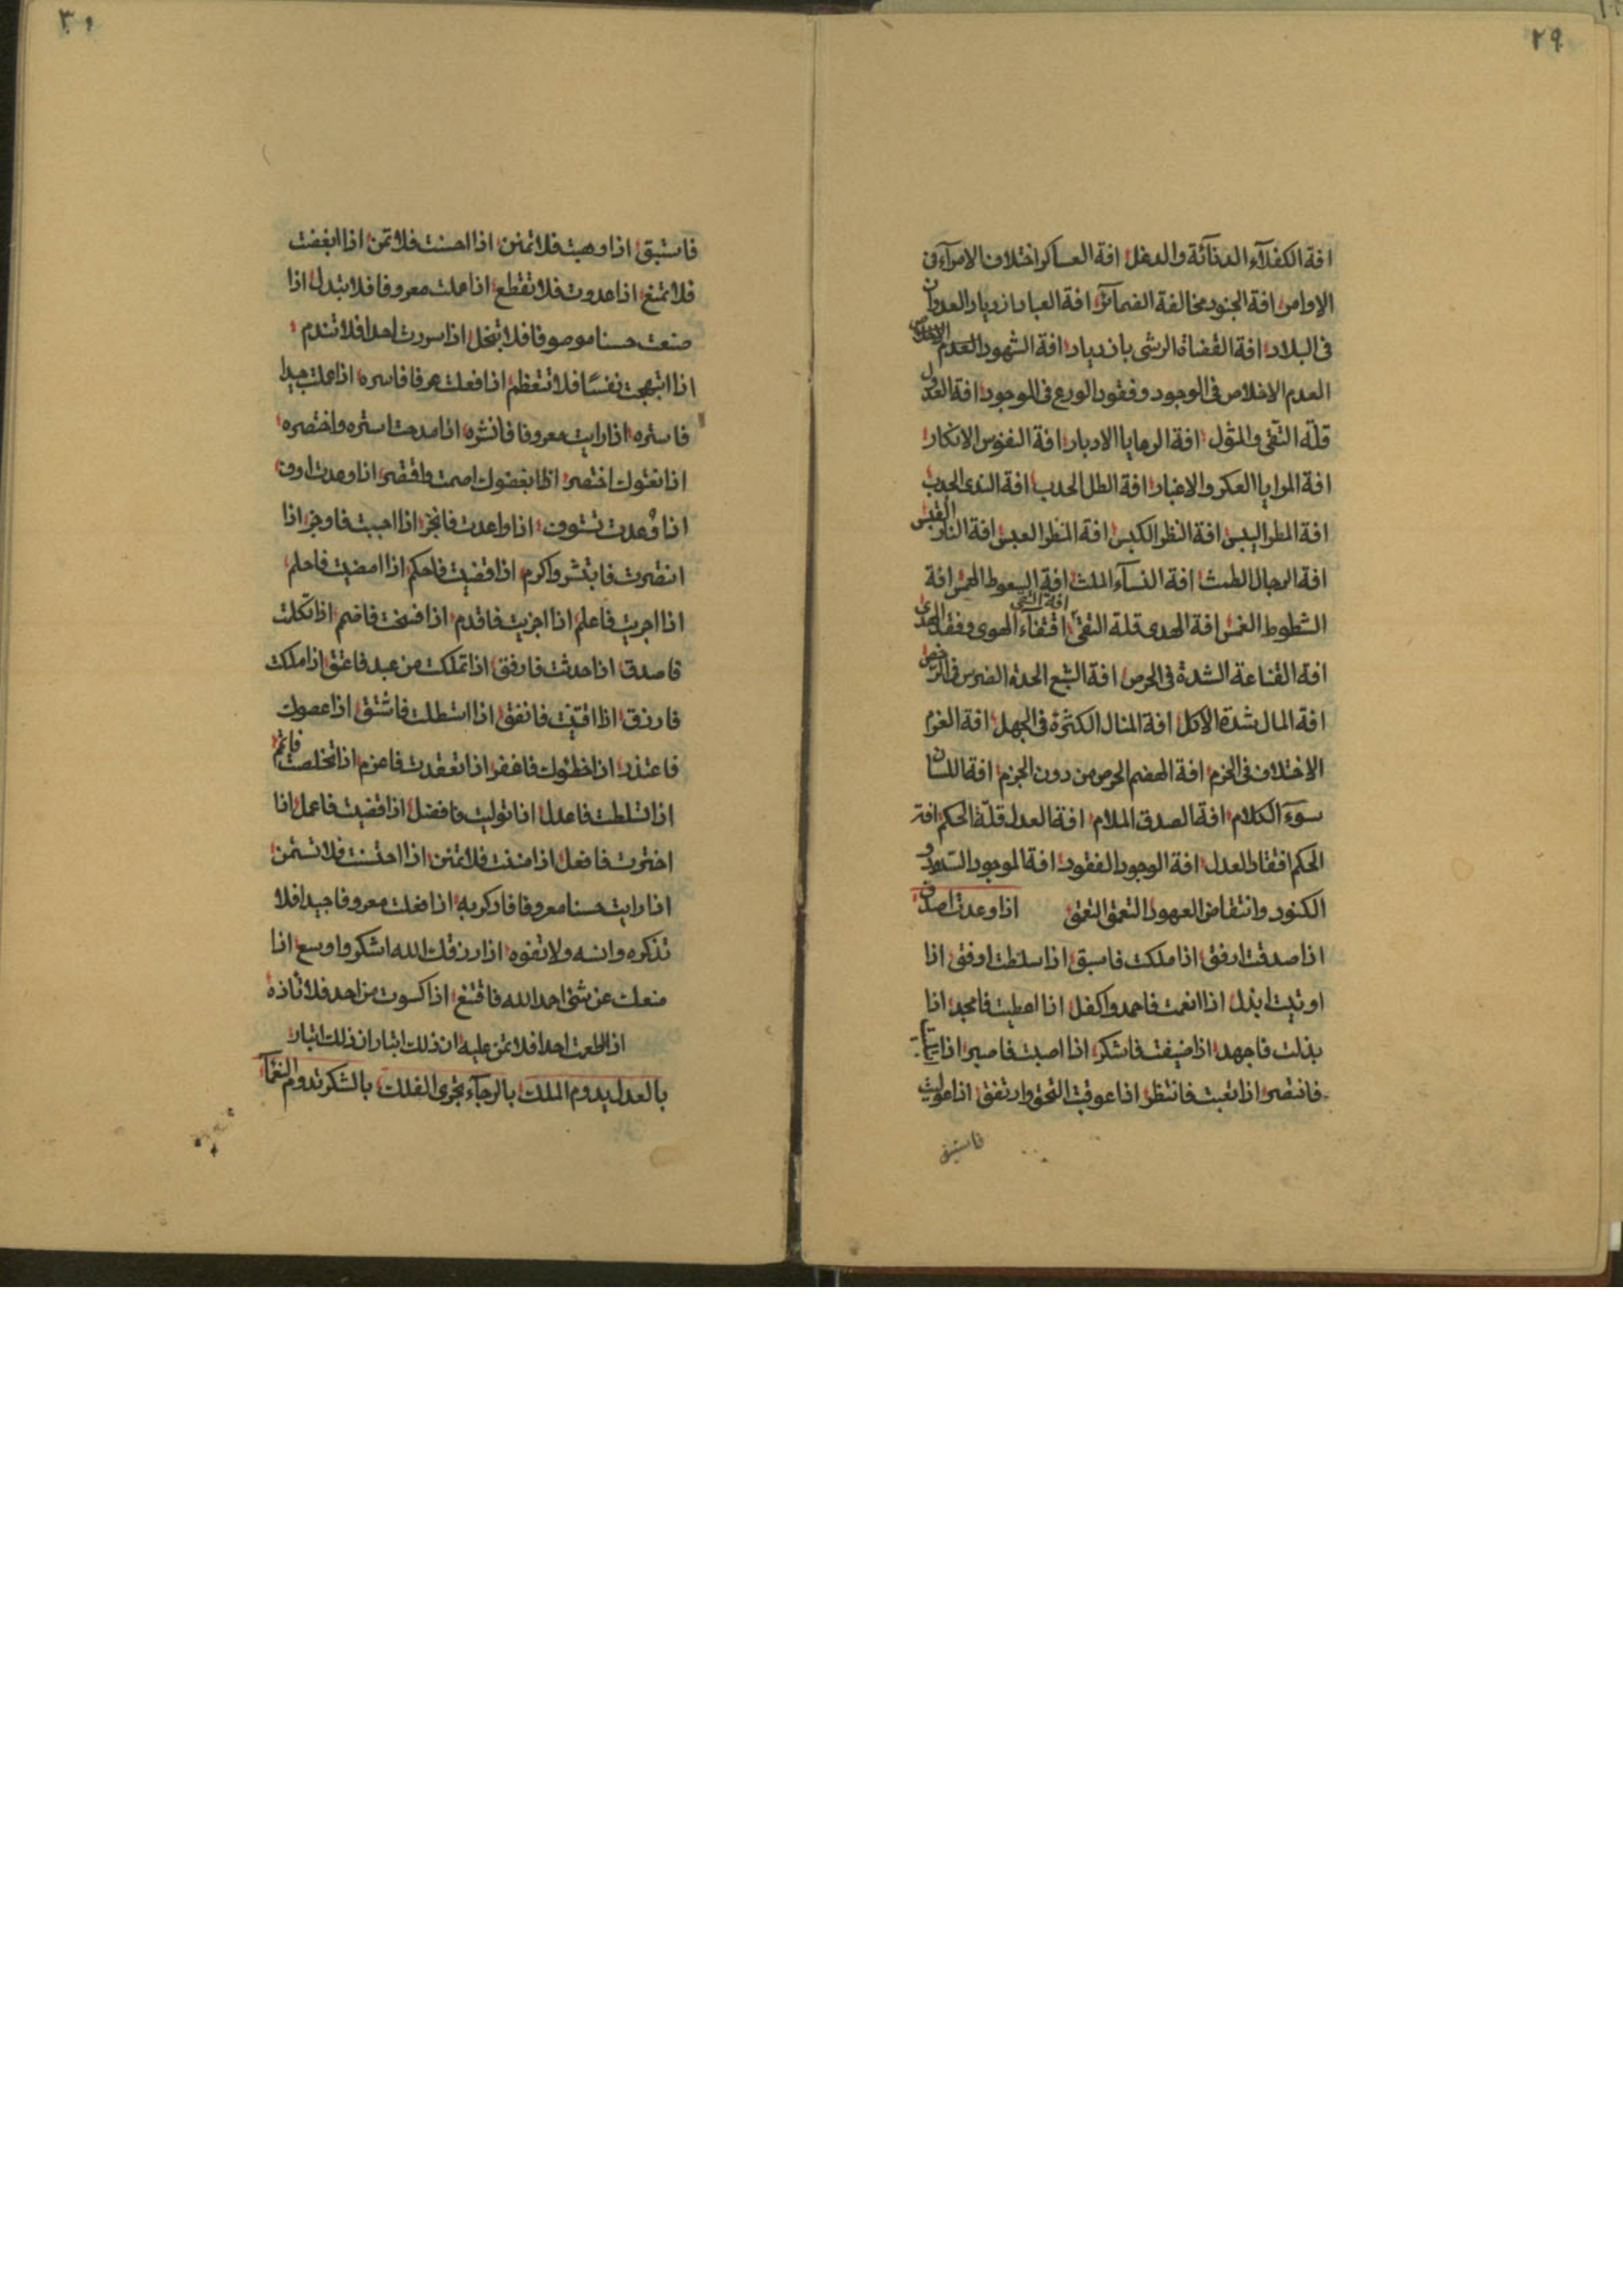 ٢٩
افة الكفلآء الدنآئة والدغل افة العساكر اختلاف الامرآء فى
الاوامر افة الجنود مخالفة الضمآئر افة العباد ازدياد العدوان
فى البلاد افة القضاة الرشى بازدياد افة الشهود العدم الاخلاص
العدم الاخلاص فى الوجود وفقود الورع فى الموجود افة العدول
قلّة التقى والمثول افة الرعايا الادبار افة النفوس الانكار
افة المرايا العكر والاغبار افة الطل الجدب افة الندى الجدب
افة المطر اليبس افة النظر الكبس افة المنظر العبس افة النار القبس
افة الرجال الطمث افة النسآء الملث افة السعوط افة
الشطوط افة الهدى قلة التقى افة التقى اقتفآء الهوى وفقد الهدى
افة القناعة الشدة فى الحرص افة الشبع الحدة الضرس فى
افة المال شدة الاكل افة المنال الكثرة فى الجهل افة العزم
الاختلاف فى الحزم افة الهضم الحرص من دون الجزم افة اللسان
سوء الكلام افة الصدق الملام افة العدل قلّة الحكم افة
الحكم افتقاد العدل افة الوجود الفقود افة الموجود
الكنود وانتقاض العهود التعمق التعمق اذا وعدت اصدق
اذا صدقت ارفق اذا ملكت فاسبق اذا سلطت اوفق اذا
اوتيت ابذل اذا انعمت فاحمد واكفل اذا اعطيت فامجد اذا
بذلت فاجهد اذا ضيفت فاشكر اذا اصبت فاصبر اذا
فانتصر اذا تعبت فانتظر اذا عوقبت التحق وارتفق اذا
فاستبق
٣٠
فاستبق اذا وهبت فلا تمنن اذا احسنت فلا تمن اذا ابغضت
فلا تمنع اذا عدوت فلا تقطع اذا عملت معروفا فلا تبدل اذا
صنعت حسنا موصوفا فلا تبخل اذا سررت احدا فلا تندم
اذا ابتهجت نفسًا فلا تتعظم اذا فعلت عرفا فاسره اذا عملت جيدا
فاستره اذا رايت معروفا فانشره اذا مدحت استره واختصره
اذا اختصر اذا ابغضوك اصمت واقتصر اذا وعدت اوف
اذا وُعدت تشوف اذا واعدت فانجز اذا اجبت فاوجز اذا
انتصرت فابتشر واكرم اذا قضيت فاحكم اذا امضيت فاحلم
اذا اجريت فاعلم اذا اجزيت فاقدم اذا فسخت فاضم اذا تكلمت
فاصدق اذا حدثت فارفق اذا تملكت من عبد فاعتق اذا ملكت
فارزق اذا اقتيت فانفق اذا استطلت فاشتق اذا عصوك
فاعتذر اذا خطئوك فاغفر اذا تعقدت فاعزم اذا تخلصت فاتم
اذا تسلطت فاعدل اذا توليت فافضل اذا قضيت فاعمل اذا
اخترت فافعل اذا مننت فلا تمنن اذا احتسنت فلا تستمن
اذا رايت حسنا معروفا فاذكر به اذا فعلت معروفا جيدا فلا
تذكره وانسه ولا تفوه اذا رزقك الله اشكر واوسع اذا
منعك عن شئ احمد الله فاقنع اذا كسوت من احد فلا تاذه
اذا اطعمت احدا فلا تمن عليه ان ذلك ابتار ان ذلك ابتار
بالعدل يدوم الملك بالرجآء تجرى الفلك بالشكر تدوم النعمآء